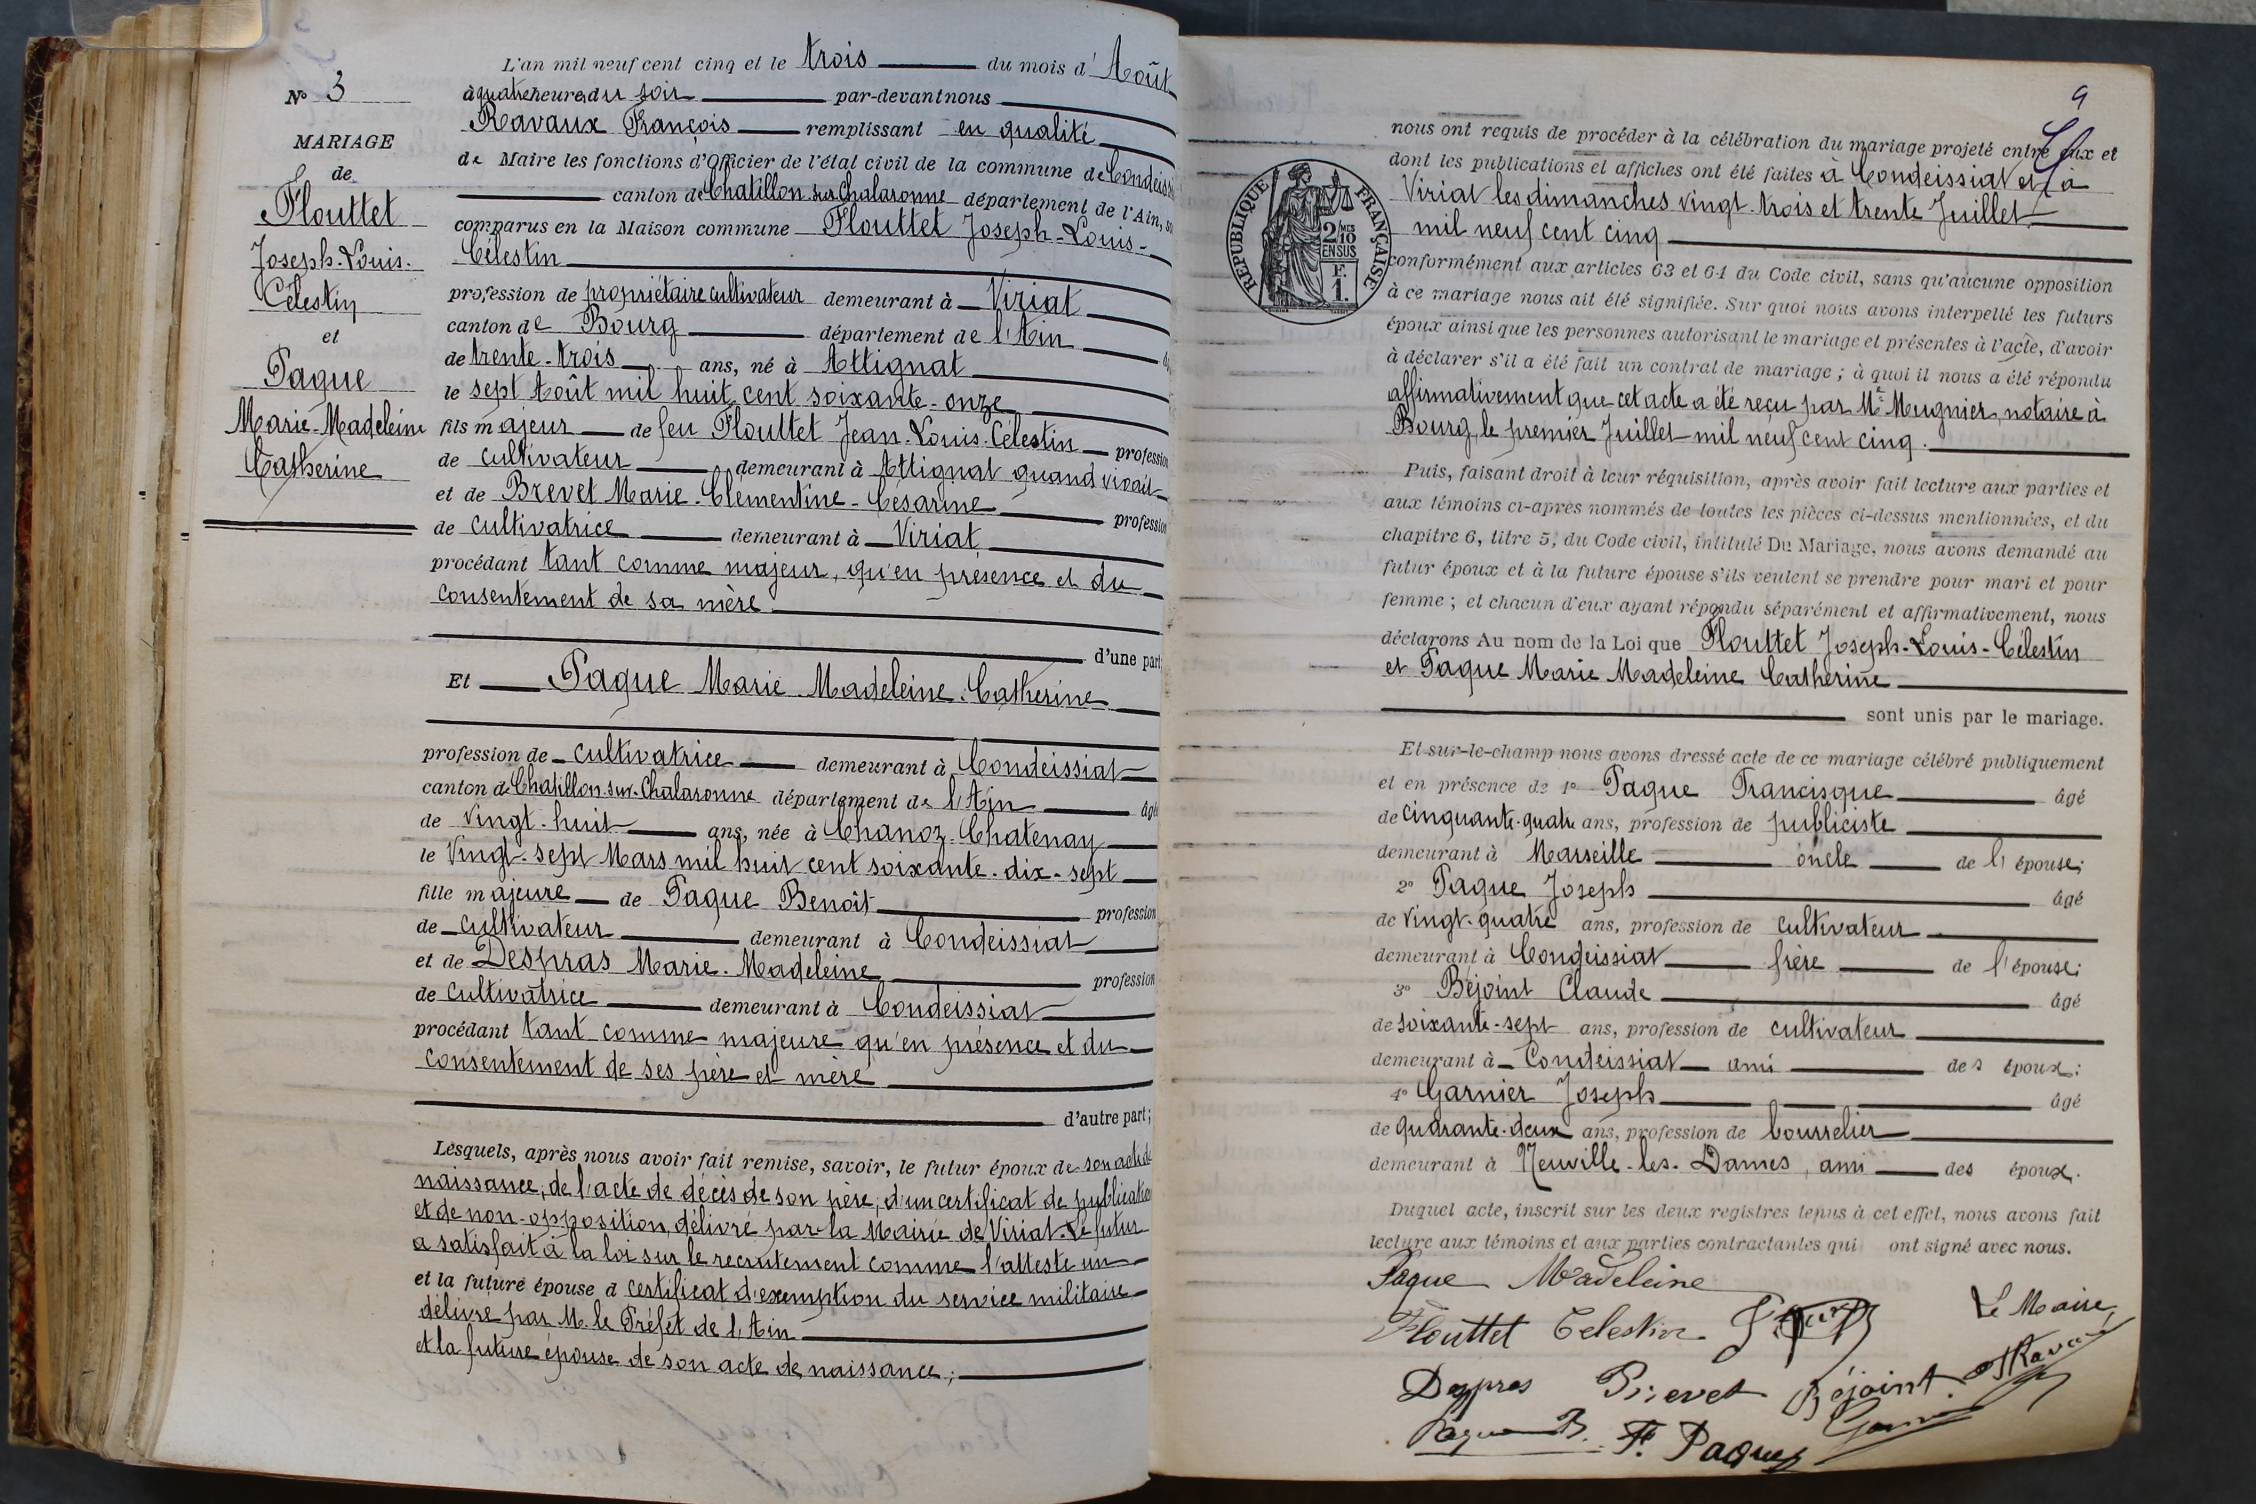 N° 3
MARIAGE
de
Flouttet
Joseph-Louis-
Célestin
et
Paque
Marie-Madeleine
Catherine
L'an mil neuf cent cinq et le trois du mois d'Août
à quatre heures du soir par-devant nous
Ravaux François remplissant en qualité
de Maire les fonctions d'Officier de l'état civil de la commune de Condeissiat
canton de Chatillon-sur-Chalaronne département de l'Ain,
comparus en la Maison commune Flouttet Joseph-Louis-
Célestin
profession de propriétaire cultivateur demeurant à Viriat
canton de Bourg département de l'Ain
de trente-trois ans, né à Attignat
le sept Août mil huit cent soixante-onze
fils majeur de feu Flouttet Jean-Louis-Célestin profession
de cultivateur demeurant à Attignat quand vivait
et de Brevet Marie-Clémentine-Césarine profession
de cultivatrice demeurant à Viriat
procédant tant comme majeur, qu'en présence et du
consentement de sa mère
d'une part
Et Paque Marie Madeleine Catherine
profession de cultivatrice demeurant à Condeissiat
canton de Chatillon-sur-Chalaronne département de l'Ain âgé
de vingt-huit ans, née à Chanoz-Chatenay
le vingt-sept Mars mil huit cent soixante-dix-sept
fille majeure de Paque Benoît profession
de cultivateur demeurant à Condeissiat
et de Despras Marie-Madeleine profession
de cultivatrice demeurant à Condeissiat
procédant tant comme majeure qu'en présence et du
consentement de ses père et mère
d'autre part;
Lesquels, après nous avoir fait remise, savoir, le futur époux de son acte de
naissance, de l'acte de décès de son père, d'un certificat de publication
et de non-opposition, délivré par la Mairie de Viriat. Le futur
a satisfait à la loi sur le recrutement comme l'atteste un
et la future épouse d certificat d'exemption du service militaire
délivré par M. le Préfet de l'Ain
et la future épouse de son acte de naissance;
9
nous ont requis de procéder à la célébration du mariage projeté entre eux et
dont les publications et affiches ont été faites à Condeissiat et à
Viriat les dimanches vingt-trois et trente Juillet
mil neuf cent cinq
RÉPUBLIQUE FRANÇAISE
2/10 MES
EN SUS
F.
1.
conformément aux articles 63 et 64 du Code civil, sans qu'aucune opposition
à ce mariage nous ait été signifiée. Sur quoi nous avons interpellé les futurs
époux ainsi que les personnes autorisant le mariage et présentes à l'acte, d'avoir
à déclarer s'il a été fait un contrat de mariage; à quoi il nous a été répondu
affirmativement que cet acte a été reçu par Me Mugnier, notaire à
Bourg, le premier Juillet mil neuf cent cinq.
Puis, faisant droit à leur réquisition, après avoir fait lecture aux parties et
aux témoins ci-après nommés de toutes les pièces ci-dessus mentionnées, et du
chapitre 6, titre 5, du Code civil, intitulé Du Mariage, nous avons demandé au
futur époux et à la future épouse s'ils veulent se prendre pour mari et pour
femme; et chacun d'eux ayant répondu séparément et affirmativement, nous
déclarons Au nom de la Loi que Flouttet Joseph-Louis-Célestin
et Paque Marie Madeleine Catherine
sont unis par le mariage.
Et sur-le-champ nous avons dressé acte de ce mariage célébré publiquement
et en présence de 1° Paque Francisque âgé
de cinquante-quatre ans, profession de publiciste
demeurant à Marseille oncle de l'épouse;
2° Paque Joseph âgé
de vingt-quatre ans, profession de cultivateur
demeurant à Condeissiat frère de l'épouse;
3° Béjoint Claude âgé
de soixante-sept ans, profession de cultivateur
demeurant à Condeissiat ami des époux;
4° Garnier Joseph âgé
de quarante-deux ans, profession de bourrelier
demeurant à Neuville-les-Dames, ami des époux.
Duquel acte, inscrit sur les deux registres tenus à cet effet, nous avons fait
lecture aux témoins et aux parties contractantes qui ont signé avec nous.
Paque Madeleine
Flouttet Celestin
Le Maire,
Despras Brevet Béjoint Ravaux
Paque B. F. Paque Garnier